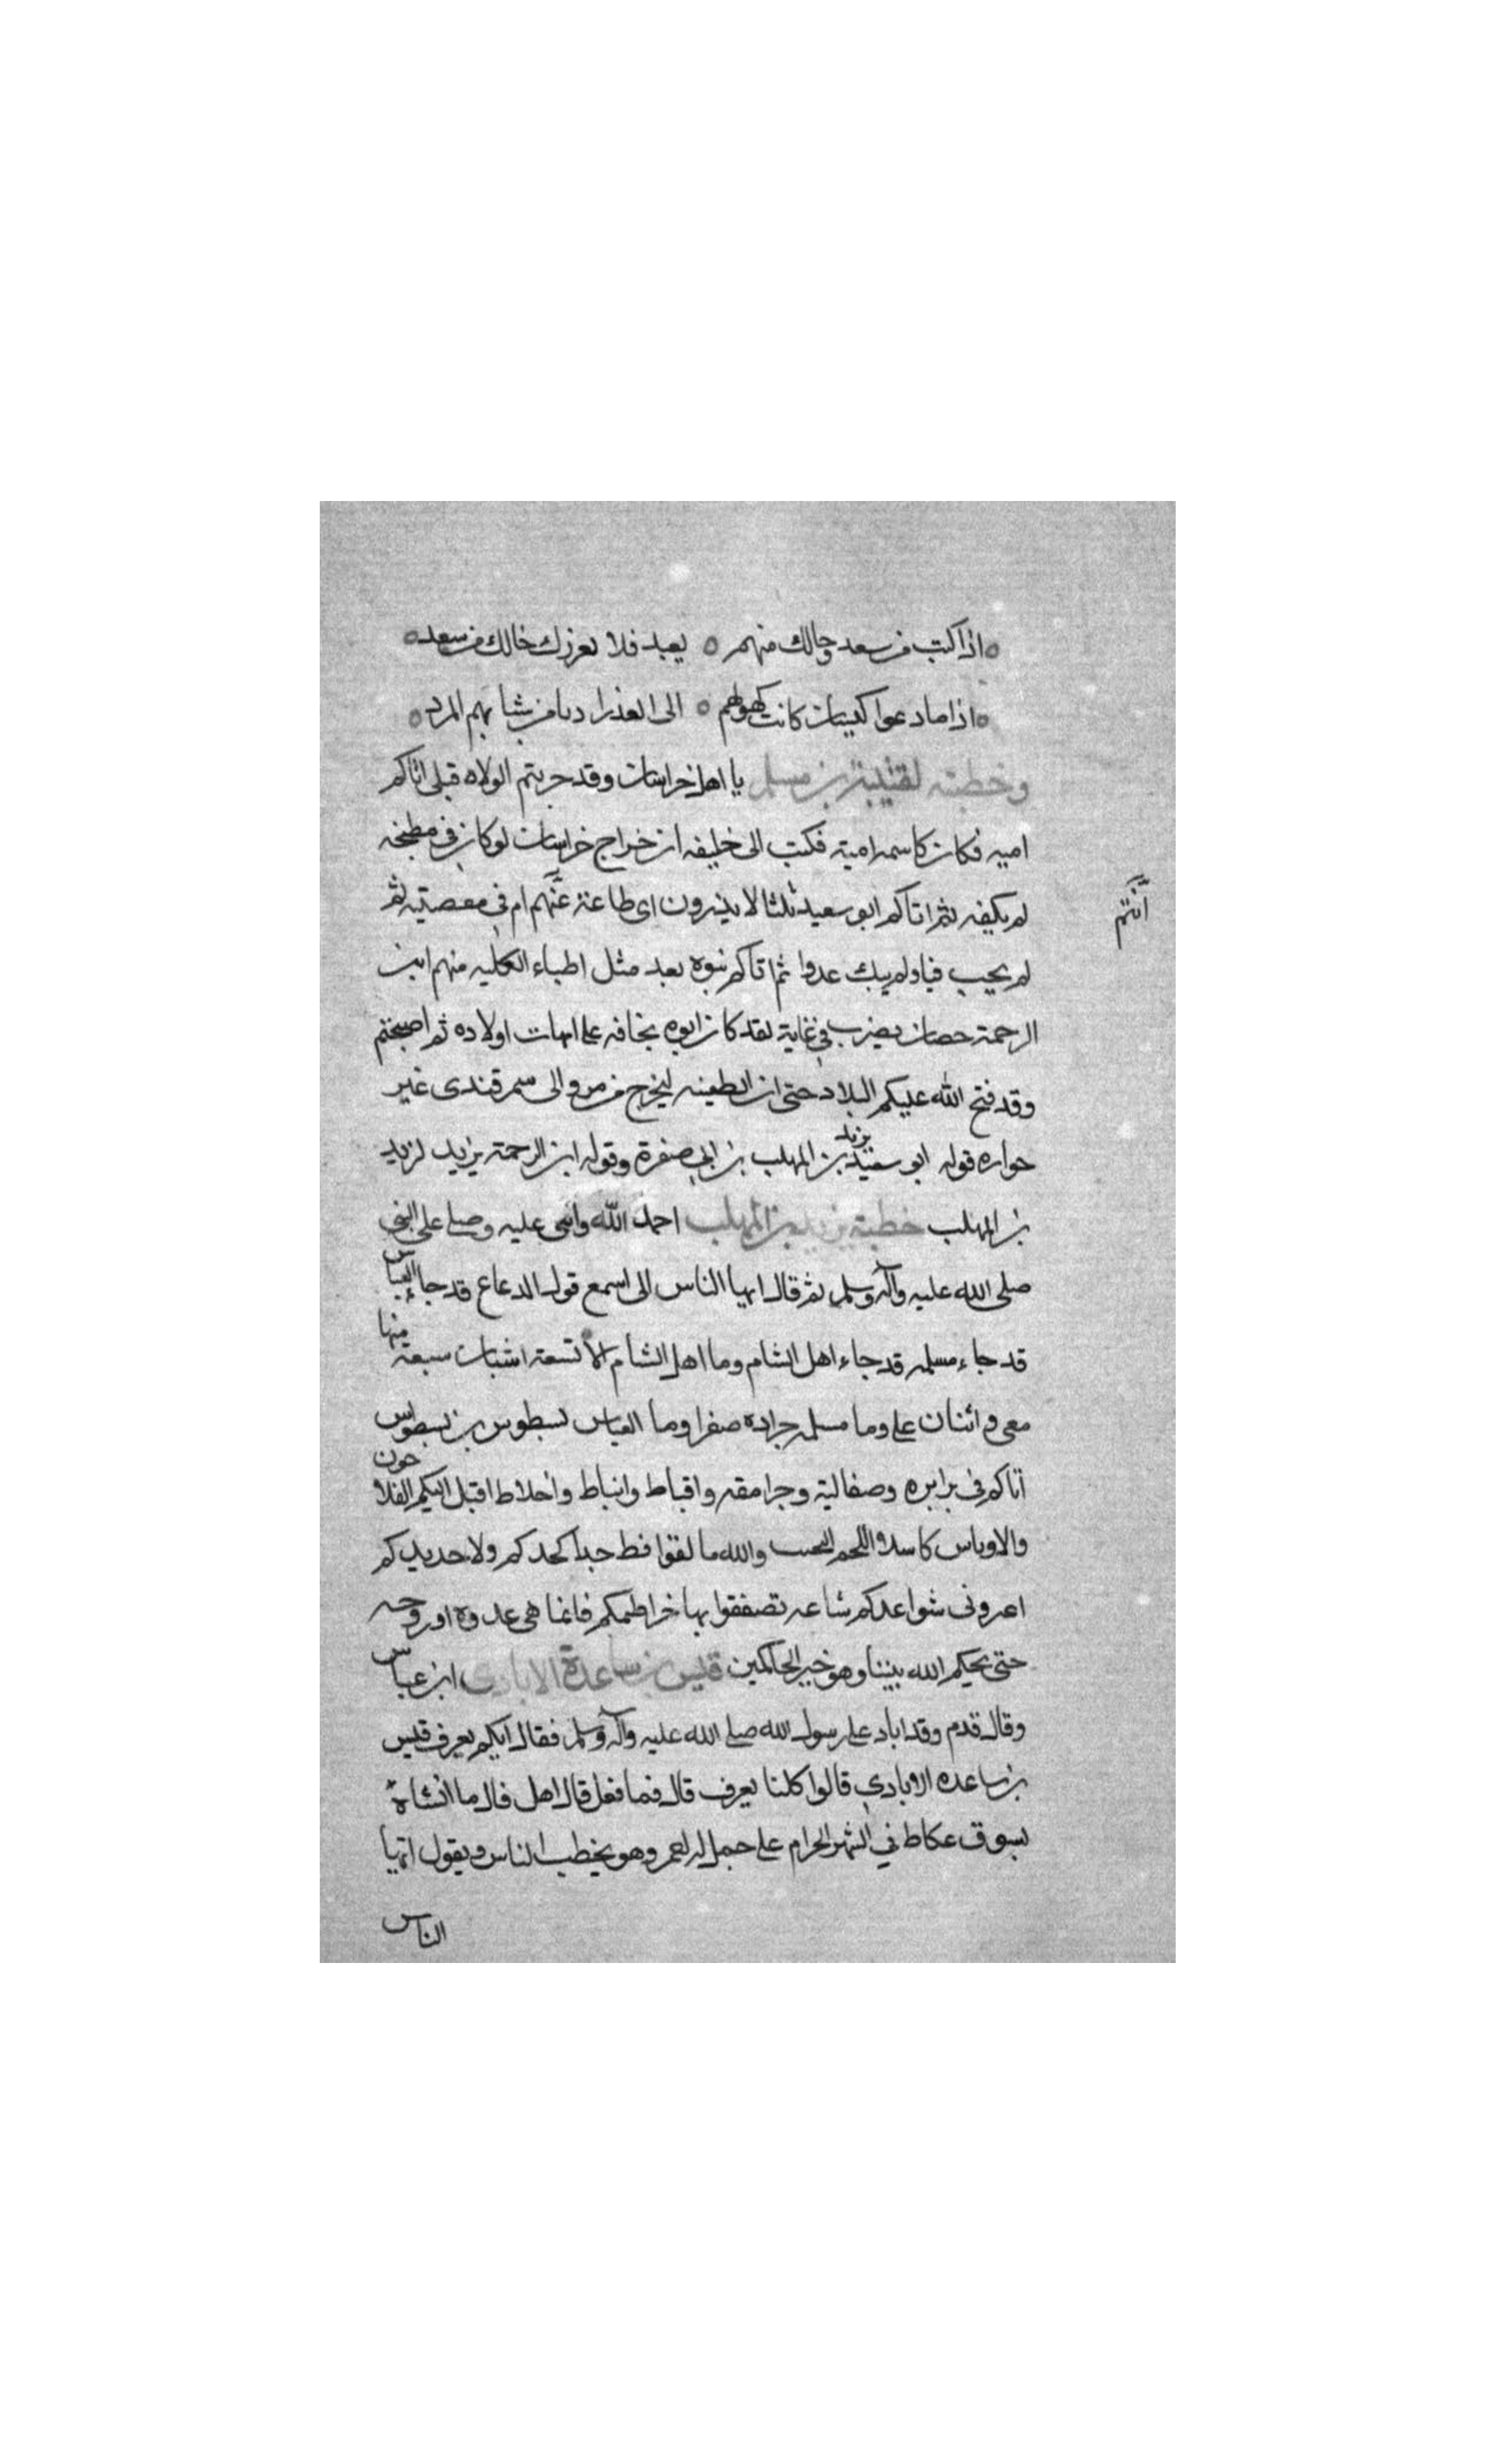 اذا كنت من سعد وخالك منهم ٥ بعيد فلا يغررك خالك من سعد
اذا ما دعوا كيسان كانت كهولهم ٥ الى الغدر ادنا من شبابهم المرد
وخطبته لقتيبة بن مسلم يا اهل خراسان وقد جربتم الولاه قبلى اتاكم
اميه فكان كاسمه امية فكتب الى خليفه ان خراج خراسان لو كان فى مطبخه
لم يكفه ثم اتاكم ابو سعيد ثلثا لا يدرون اى طاعة عنهم ام فى معصيته ثم
انتم
لم يجب فيا ولم يبك عدوا ثم اتاكم بنوه بعد مثل اطباء الكلبه منهم ابن
الرحمة حصان يضرب فى غاية لقد كان ابوه يخافه على امهات اولاده ثم اصبحتم
وقد فتح الله عليكم البلاد حتى ان الطعينه ليخرج من مرو الى سمرقندى غير
جواره قوله ابو سعيد يزيد بن المهلب بن ابى صفرة وقوله ابن الرحمة يزيد لزيد
بن المهلب خطبة يزيد بن المهلب احمد الله واثنى عليه وصلى على النبى
صلى الله عليه وآله وسلم ثم قال ايها الناس الى اسمع قول الدعاع قد جاء العباس
قد جاء مسلمه قد جاء اهل الشام وما اهل الشام الا تسعة اشبات سبعة منها
معى واثنان على وما مسلمه جرادة صفرا وما العباس نسطوس بن نسطوس
اتاكم فى برابره وصقالبة وجرامقه واقباط وانباط واخلاط اقبل اليكم الفلاحون
والاوباس كاسلا اللحم والله ما لقوا قط حدا كحدكم ولا حديدكم
اعرونى شواعدكم شاعه تصفقوا بها خراطمكم فانما هى عدوة او روحه
حتى يحكم الله بيننا وهو خير الحاكمين قيس بن ساعدة الايادى ابن عباس
وقال قدم وقد اياد على رسول الله صلى الله عليه وآله وسلم فقال ايكم يعرف قيس
بن ساعده الايادى قالوا كلنا يعرف قال فما فعل قال اهل قال ما انشاه
بسوق عكاظ في الشهر الحرام على جمل له احمر وهو يخطب الناس ويقول ايها
الناس